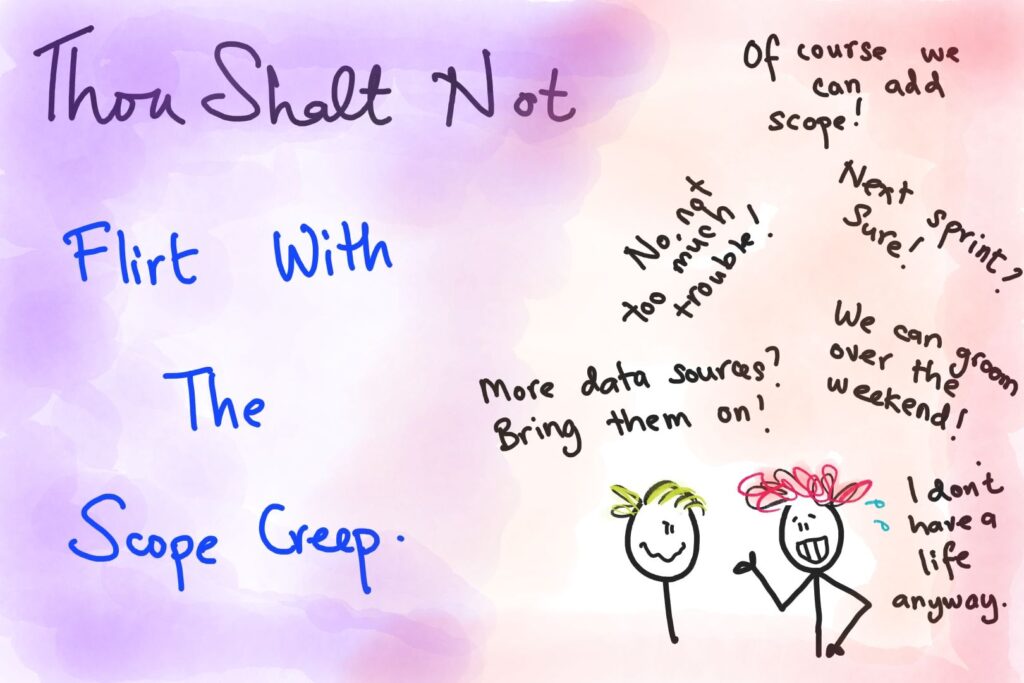 Thou Shalt Not
Flirt With
The
Scope Creep.
Of course we
can add
scope!
Next sprint?
Sure!
No, not
too much
trouble!
We can groom
over the
weekend!
More data sources?
Bring them on!
I don't
have a
life
anyway.